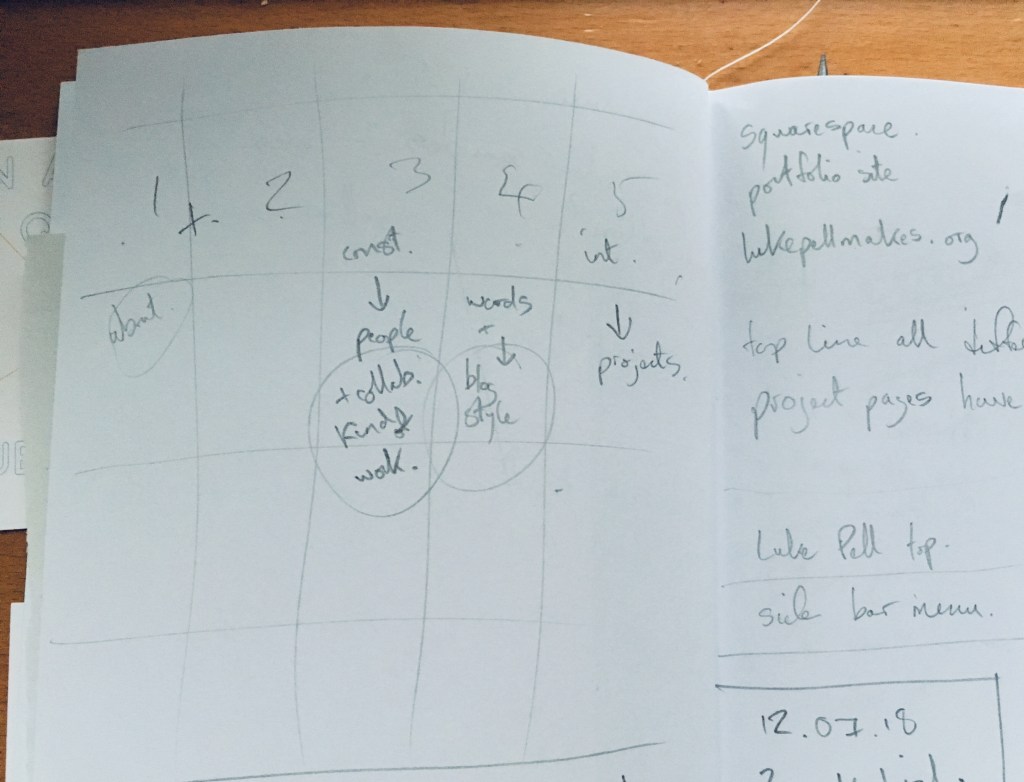 1 2 3 4 5
const. int.
about.
people
words
+
projects.
+ collab.
blog
style
kind of
work.
squarespace.
portfolio site
lukepellmakes.org
top line all
project pages have
Luke Pell top.
side bar menu.
12.07.18